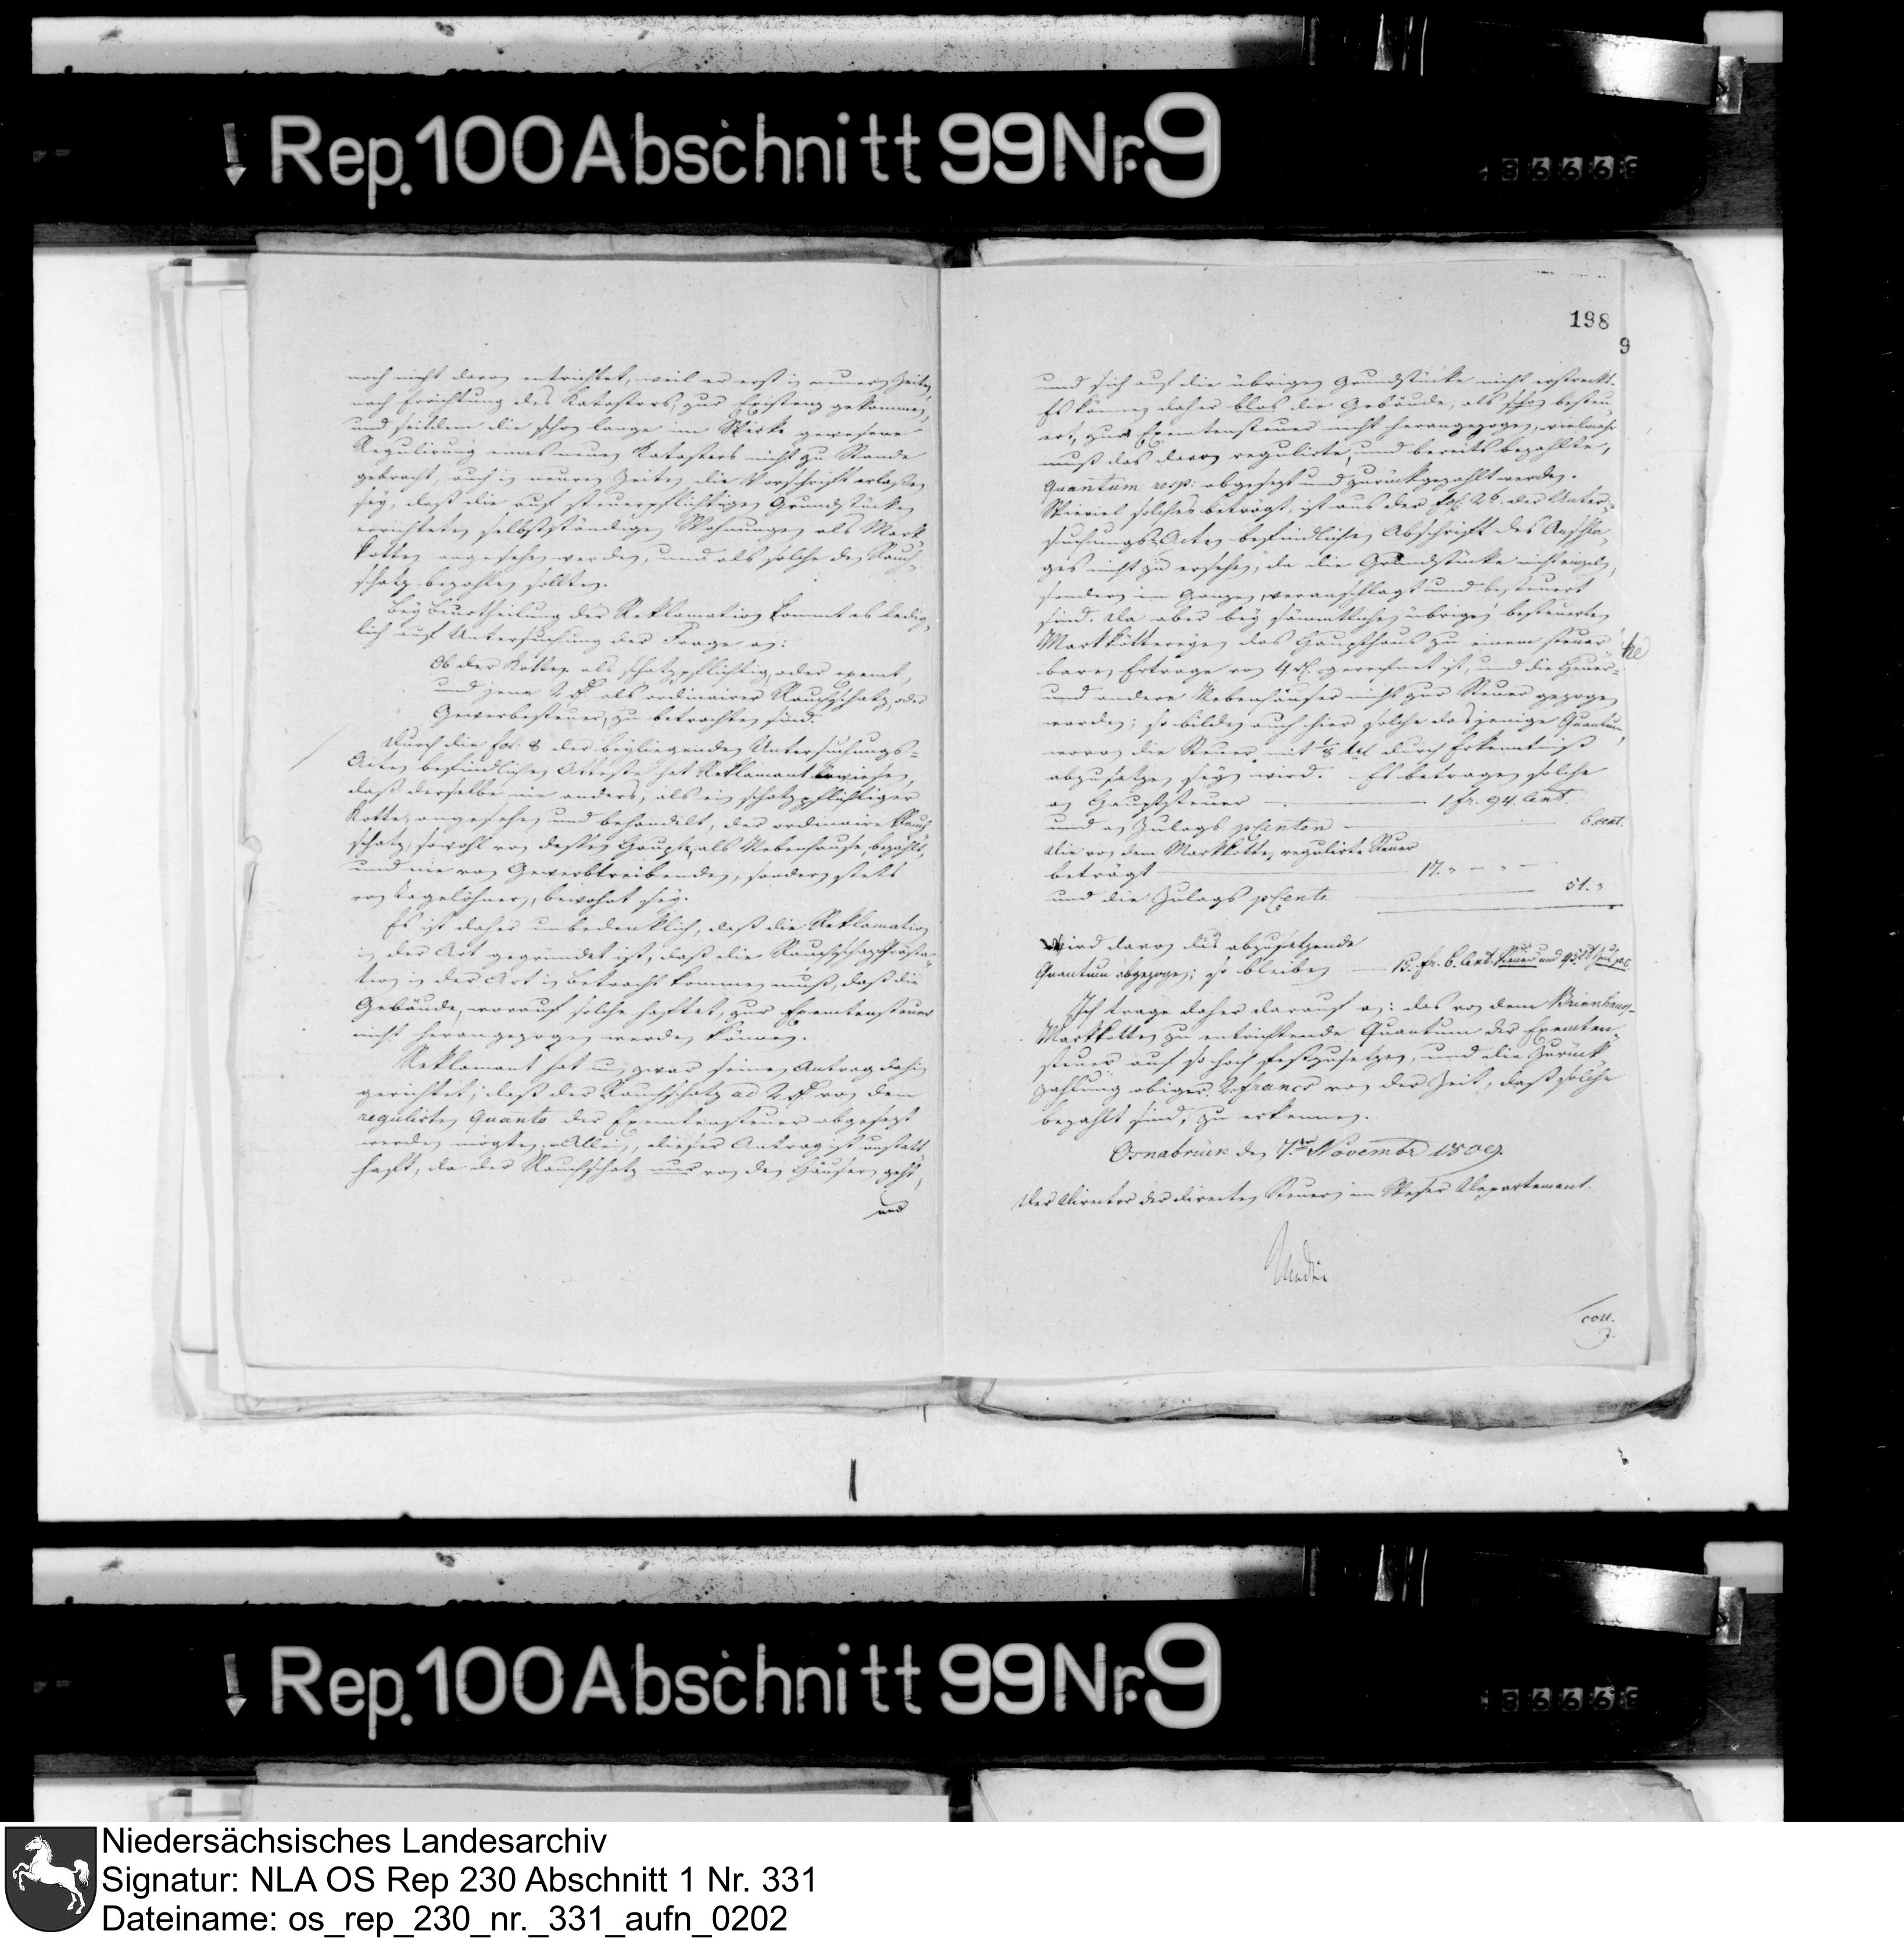 Rep. 100 Abschnitt 99 Nr. 9
noch nicht davon entrichtet, weil er erst in neuern Zeiten,
nach Errichtung des Katasters, zur Existenz gekommen,
und seitdem die schon lange im Werke gewesene
Regulirung eines neuen Katasters nicht zu Stande
gebracht, auch in neuern Zeiten die Vorschrift erlaßen
sey, daß die auf steuerpflichtigen Grundstücken
errichteten selbstständigen Wohnungen als Mark
kotten angesehen werden, und als solche den Rauch
schatz bezahlen sollten.
Bey Beurtheilung der Reklamation kommt es ledig
lich auf Untersuchung der Frage an:
Ob der Kotten als schatzpflichtig oder exemt,
und jene 2 als ordinairer Rauchschatz, oder
Gewerbesteuer, zu betrachten sind.
Durch die fol. 8 der beyliegenden Untersuchungs-
Acten befindlichen Atteste hat Reklamant erwiesen,
daß derselbe nie anders, als ein schatzpflichtiger
Kotten, angesehen und behandelt, der ordinaire Rauch
schatz, sowohl von dessen Haupt- als Nebenhause, bezahlt,
und nie von Gewerbtreibenden, sondern stets
von Tagelöhnern, bewohnt sey.
Es ist daher unbedenklich, daß die Reklamation
in der Art gegründet ist, daß die Rauchschatzprästa-
tion in der Art in Betracht kommen muß, daß die
Gebäude, worauf solche haftet, zur Exemtensteuer
nicht herangezogen werden können.
Reklamant hat nun zwar seinen Antrag dahin
gerichtet, daß der Rauchschatz ad 2 von dem
regulirten Quanto der Exemtensteuer abgesezt
werden mögten. Allein, dieser Antrag ist unstatt
haft, da der Rauchschatz nur von den Häusern geht,
und
198
9
und sich auf die übrigen Grundstücke nicht erstreckt.
Es können daher blos die Gebäude, als schon besteu
ert, zur Exemtensteuer nicht herangezogen, vielmehr
muß das davon regulirte, und bereits bezahlte,
Quantum resp: abgesezt und zurückgezahlt werden.
Wieviel solches beträgt, ist aus der fol. 26. der Unter-
suchungs-Acten befindlichen Abschrift des Anschla
ges nicht zu ersehen, da die Grundstücke nicht einzeln,
sondern im Ganzen, veranschlagt und besteuert
sind. Da aber bey sämmtlichen übrigen besteuerten
Markköttereyen das Haupthaus zu einem steuer
baren Ertrage von 4 gerechnet ist, und die Heuer-
und andere Nebenhäuser nicht zur Steuer gezogen
worden; so bilden auch hier solche dasjenige Quantum,
wovon die Steuer mit 1/8 tel durch Erkenntniß
abzusetzen seyn wird. Es betragen solche
an Hauptsteuer — 1 fr. 94 Cent.
und an Zulags pCenten — 6 Cent.
Die von dem Markkotten regulirte Steuer
beträgt — 17. „ — „ —
und die Zulags pCente — 51. „
Wird davon das abzusetzende
Quantum abgezogen; so bleiben — 15. fr. 6. Cent. Steuer und 45.
Ich trage daher darauf an: das von dem Brinnhaus-
Markkotten zu entrichtende Quantum der Exemten
steuer auf so hoch festzusetzen, und die Zurück
zahlung obiger 2. Francs von der Zeit, daß solche
bezahlt sind, zu erkennen.
Osnabrück den 7ten November 1809.
Der Director der directen Steuern im Weser Departement.
coll.
Rep. 100 Abschnitt 99 Nr. 9
Niedersächsisches Landesarchiv
Signatur: NLA OS Rep 230 Abschnitt 1 Nr. 331
Dateiname: os_rep_230_nr._331_aufn_0202